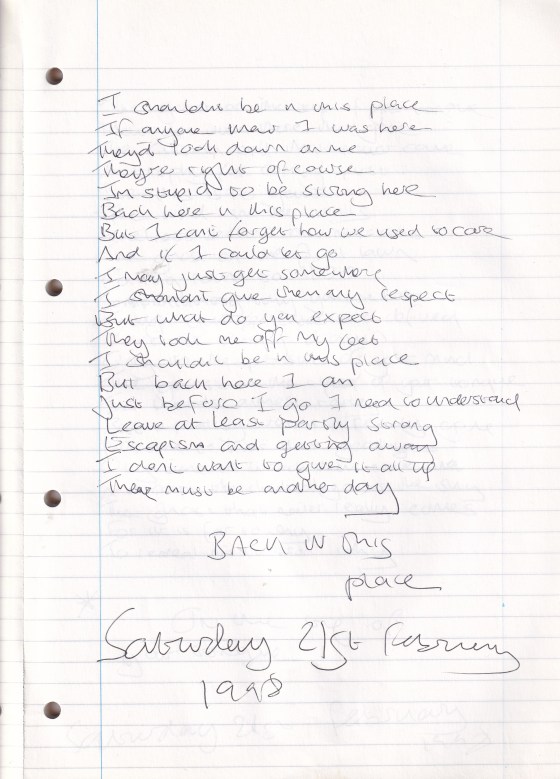 I shouldnt be in this place
If anyone knew I was here
They'd look down on me
They're right of course
Im stupid to be sitting here
Back here in this place
But I cant forget how we used to care
And if I could let go
I may just get somewhere
I shouldn't give them any respect
But what do you expect
They took me off my feet
I shouldnt be in this place
But back here I am
Just before I go I need to understand
Leave at least partly strong
Escapism and getting away
I dont want to give it all up
There must be another day
BACK IN this
place
Saturday 21st February
1998